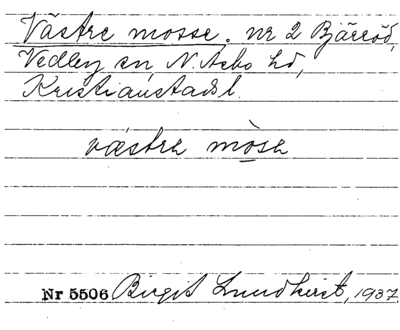 Västre mosse. nr 2 Bjäröd,
Vedby sn N. Åsbo hd,
Kristianstads l.
västrə mòsə
Nr 5506 Birgit Lundkvist, 1937